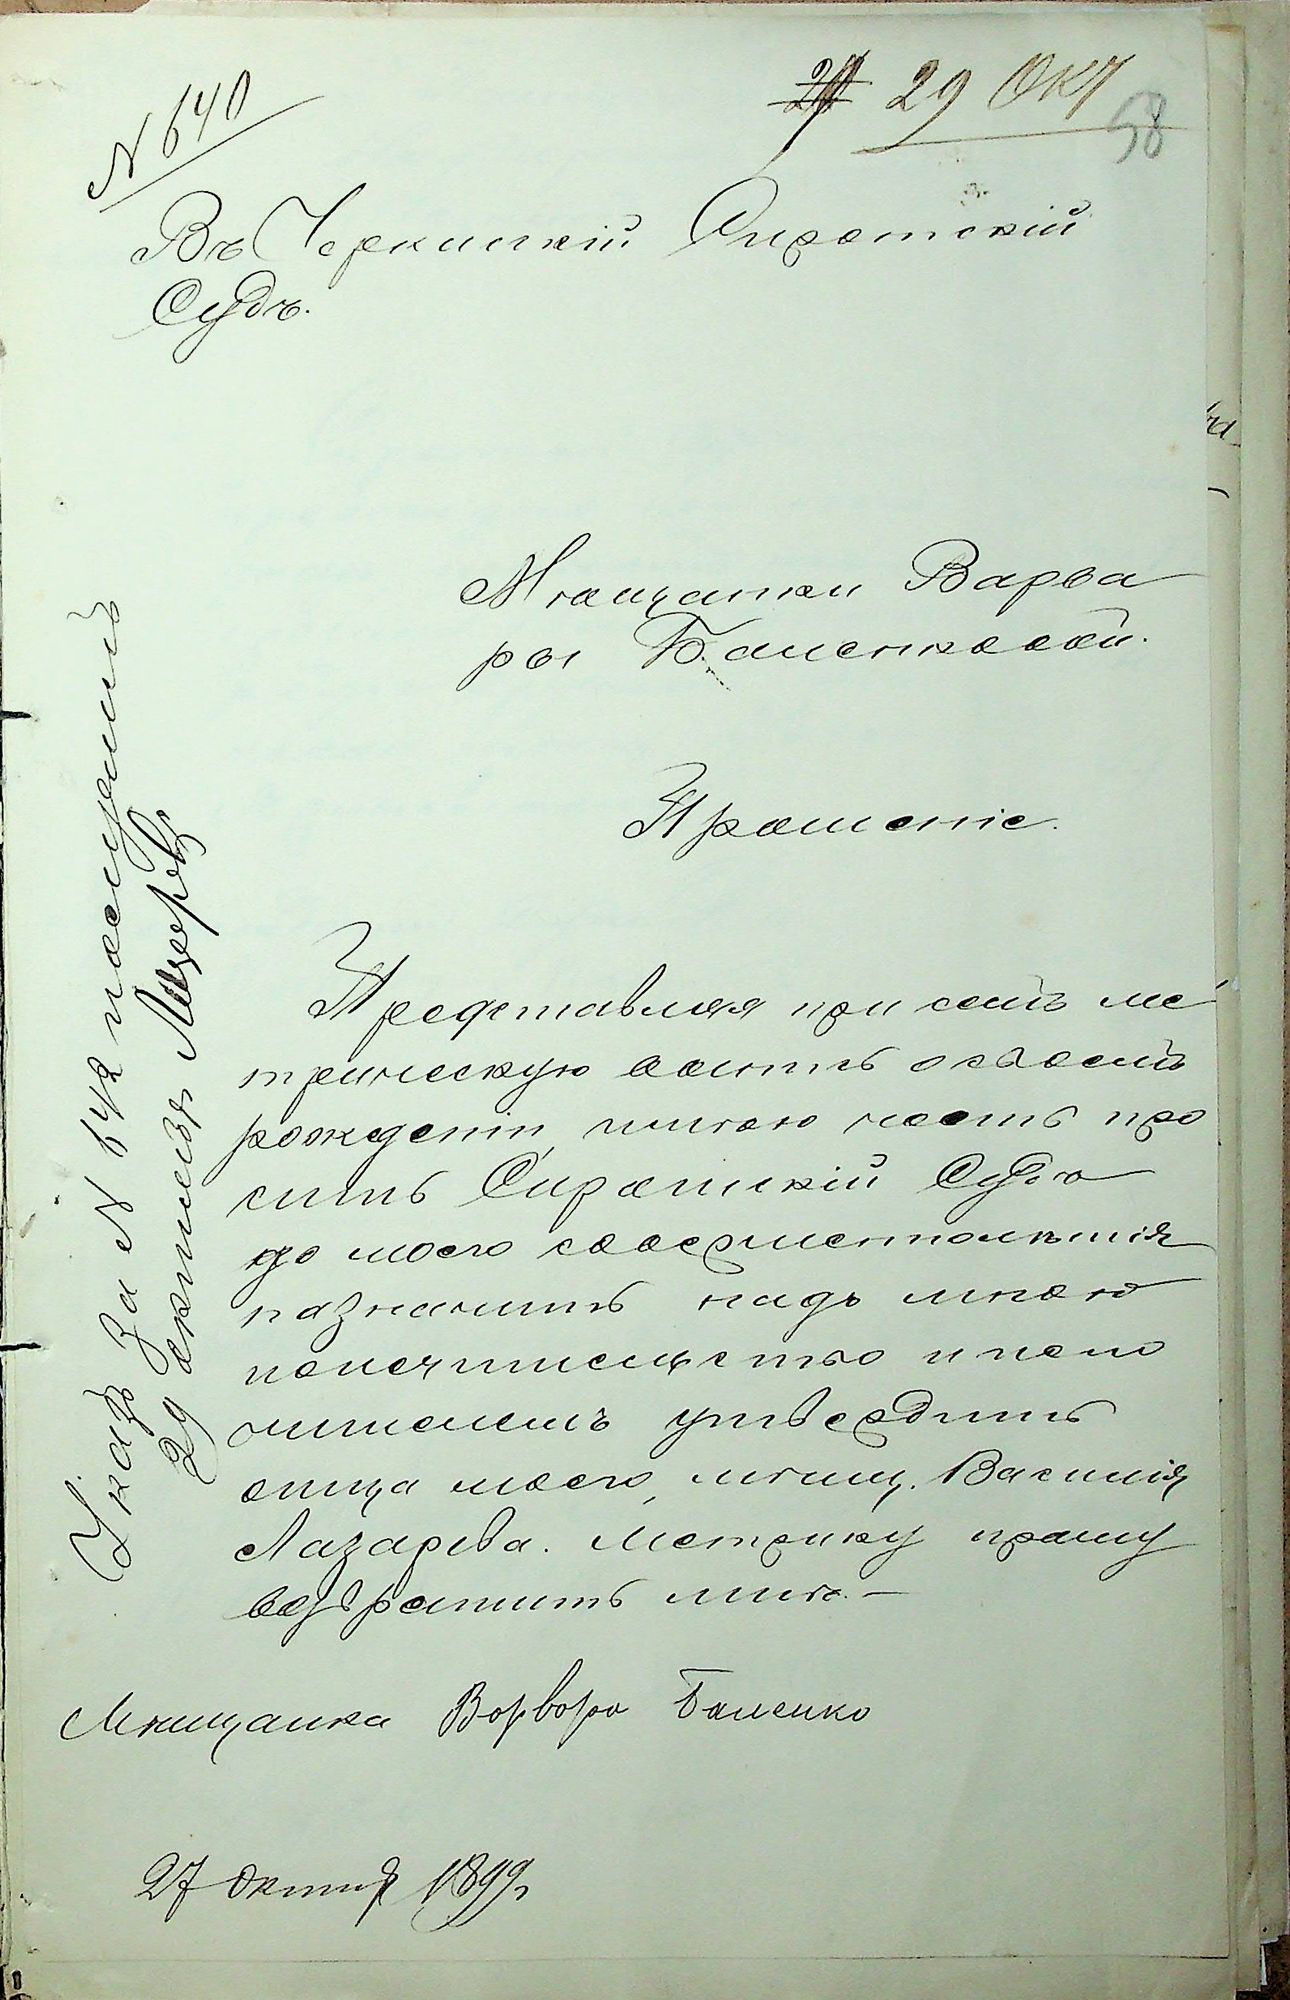 N 640
29 Окт
58
Въ Черкаский Сиротскій
Судъ.
Мѣщанки Варва
ры Баленковой.
Прошеніе.
Представляя при семъ ме
трическую о своемъ
рожденіи, имѣю честь про
сить Сиротскій Судъ
до моего совершеннолѣтія
назначить надъ мною
попечительство и попе
чителемъ утвердить
отца моего, мѣщ. Василія
Лазарева. Метрику прошу
возвратить мнѣ. —
Мѣщанка Варвара Баленко
27 Октяб 1899 г.
Указъ за N 642
29 октября